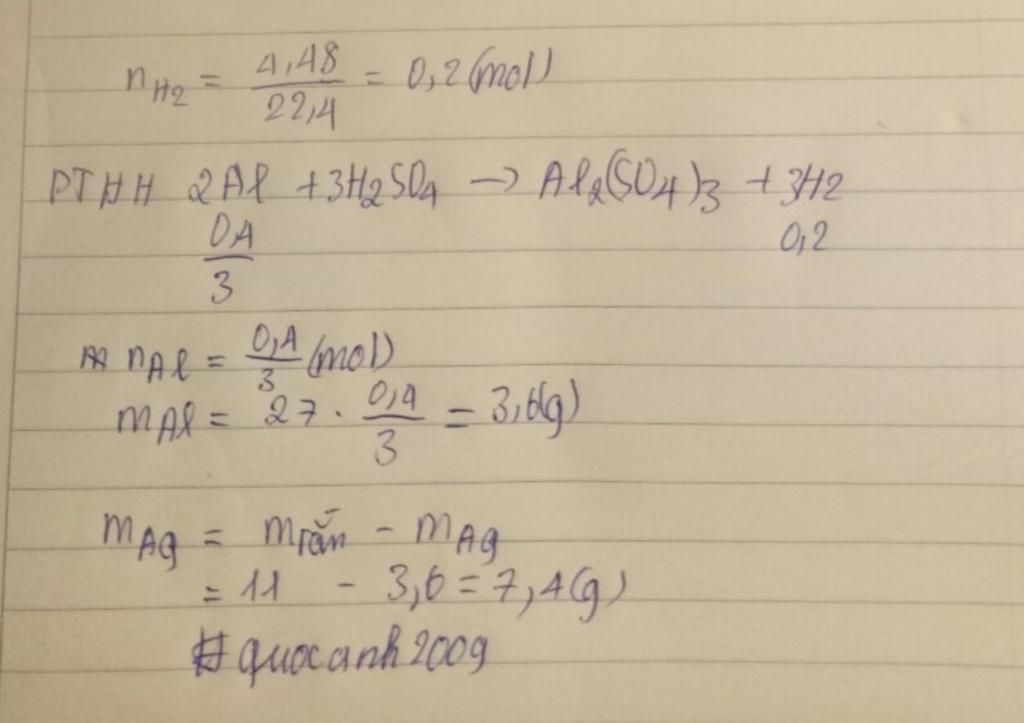 nH2 = 4,48/22,4 = 0,2(mol)
PTHH 2Al + 3H2SO4 → Al2(SO4)3 + 3H2
0,4/3 0,2
nAl = 0,4/3 (mol)
mAl = 27 . 0,4/3 = 3,6(g)
mAg = mrắn - mAg
= 11 - 3,6 = 7,4(g)
#quocanh2009